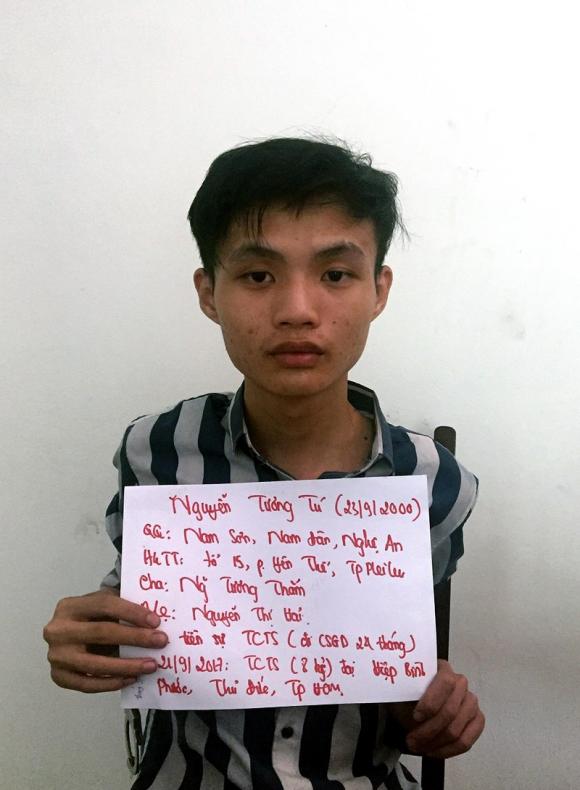 Nguyễn Tương Tú (23/9/2000)
QQ: Nam Sơn, Nam Đàn, Nghệ An
HKTT: tổ 15, p. Yên Thế, Tp Pleiku
Cha: Ng Tương Thắm
Mẹ: Nguyễn Thị Hai.
tiền sự TCTS (đi CSGD 24 tháng)
21/9/2017: TCTS (8 kỷ) tại Hiệp Bình
Phước, Thủ Đức, Tp HCM.